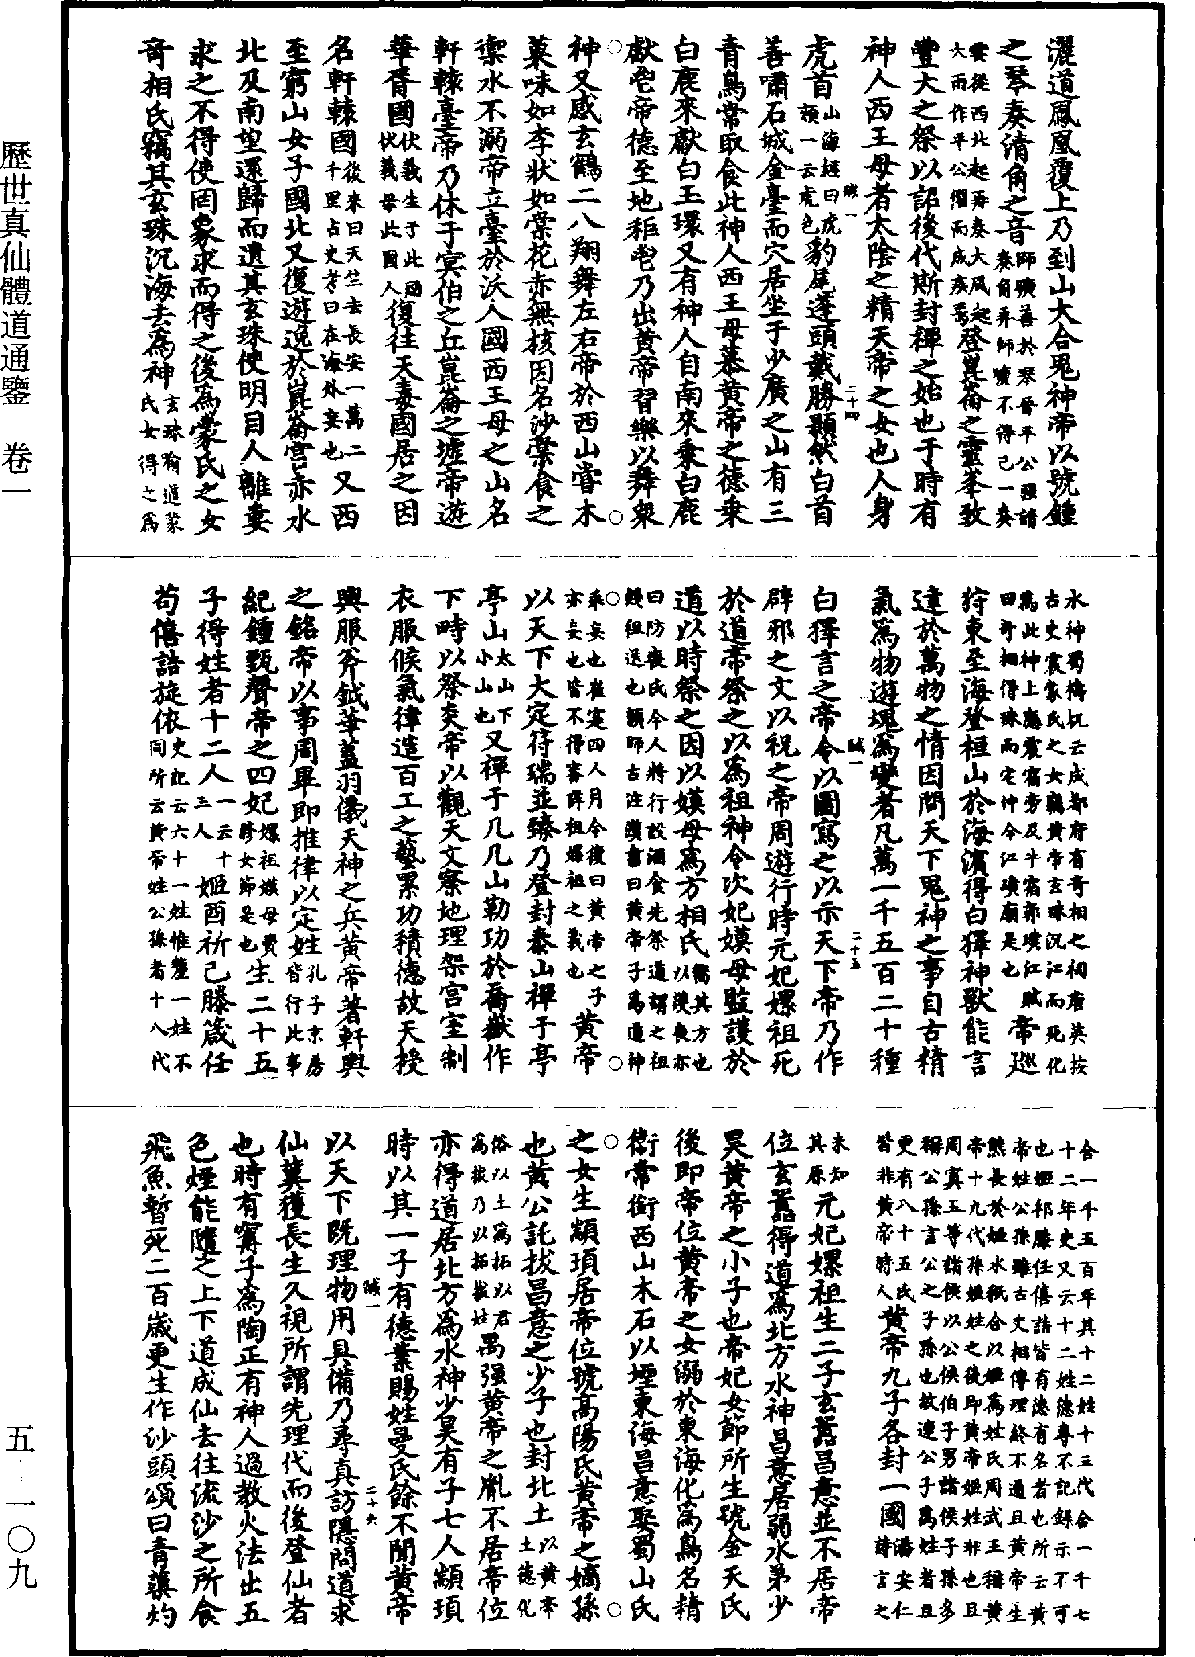 灑道鳳凰覆上乃到山大合鬼神帝以號鍾
之琴奏清角之音師曠善於琴晉平公強請奏角弄師曠不得已一奏
雲從西北起再奏大風起大雨作平公懼而成疾焉登崑崙之靈峯致
豐大之祭以詔後代斯封禪之始也于時有
神人西王母者太陰之精天帝之女也人身
虎首山海經曰虎顏一云虎色豹尾蓬頭戴勝顥然白首
善嘯石城金臺而穴居坐于少廣之山有三
青鳥常取食此神人西王母慕黃帝之德乗
白鹿來獻白玉環又有神人自南來乗白鹿
獻鬯帝德至地秬鬯乃出黃帝習樂以舞衆
神又感玄鶴二八翔舞左右帝於西山嘗木
菓味如李狀如棠花赤無核因名沙棠食之
禦水不溺帝立臺於沃人國西王母之山名
軒轅臺帝乃休于冥伯之丘崑崙之墟帝遊
華胥國伏羲生于此國伏羲母此國人復往天毒國居之因
名軒轅國後來曰天竺去長安一萬二千里占史考曰在海外妄也又西
至窮山女子國北又復遊逸於崑崙宮赤水
北及南望還歸而遺其玄珠使明目人離婁
求之不得使罔象求而得之後為蒙氏之女
奇相氏竊其玄珠沉海去為神玄珠喻道蒙氏女得之為
水神蜀檮杌云成都府有奇相之祠唐英按
古史震蒙氏之女竊黃帝玄珠沉江而死化
為此神上應震宿旁及牛宿郭璞江賦
曰奇相得珠而宅神今江瀆廟是也帝巡
狩東至海登桓山於海濱得白獇神獸能言
達於萬物之情因問天下鬼神之事自古精
氣為物遊魂為變者凡萬一千五百二十種
白獇言之帝令以圖寫之以示天下帝乃作
辟邪之文以祝之帝周遊行時元妃嫘祖死
於道帝祭之以為祖神令次妃嫫母監護於
道以時祭之因以嫫母為方相氏嚮其方也以護喪亦
曰防喪氏今人將行設酒食先祭道謂之祖
餞祖送也顏師古注漢書曰黃帝子為道神
乘妄也崔寔四人月令復曰黃帝之子
亦妄也皆不得審詳祖嫘祖之義也黃帝
以天下大定符瑞並臻乃登封泰山禪于亭
亭山太山下小山也又禪于几几山勒功於喬嶽作
下時以祭炎帝以觀天文察地理架宮室制
衣服候氣律造百工之藝累功積德故天授
輿服斧鉞華蓋羽儀天神之兵黃帝著軒輿
之銘帝以事周畢即推律以定姓孔子京房皆行此事
紀鍾甄聲帝之四妃嫘祖嫫母費脩女節是也生二十五
子得姓者十二人一云十三人姬酉祈己滕箴任
苟僖詰旋依史記云六十一姓惟釐一姓不同所云黃帝姓公孫者十八代
合一千五百年其十二姓十三代合一千七
十二年史又云十二姓德專不記錄示不可
也姬祁滕任僖詰皆有德有名者也所云黃
帝姓公孫雖古史相傳理終不通且黃帝生
熊長於姬水紙合以姬為姓氏周武王稱黃
帝十九代孫姬姓之後即黃帝姬姓非也且
周寘五等諸侯以公侯伯子男諸侯子孫多
稱公孫言公之子孫也故連公子為姓者且
更有八十五氏皆非黃帝時人黃帝九子各封一國潘安仁詩言之
未知其原元妃嫘祖生二子玄囂昌意並不居帝
位玄囂得道為北方水神昌意居弱水弟少
昊黃帝之小子也帝妃女節所生號金天氏
後即帝位黃帝之女溺於東海化為鳥名精
衛常銜西山木石以堙東海昌意娶蜀山氏
之女生顓頊居帝位號高陽氏黃帝之嫡孫
也黃公託拔昌意之少子也封北土以黃帝土德化
俗以土為拓以君為拔乃以拓拔姓禺強黃帝之胤不居帝位
亦得道居北方為水神少昊有子七人顓頊
時以其一子有德業賜姓曼氏餘不聞黃帝
以天下既理物用具備乃尋真訪隱問道求
仙冀獲長生久視所謂先理代而後登仙者
也時有甯子為陶正有神人過教火法出五
色煙能隨之上下道成仙去往流沙之所食
飛魚暫死二百歲更生作沙頭頌曰青蕖灼
鹹一
二十四
鹹一
二十五
鹹一
二十六
歷世真仙體道通鑒 卷一
五·一〇九